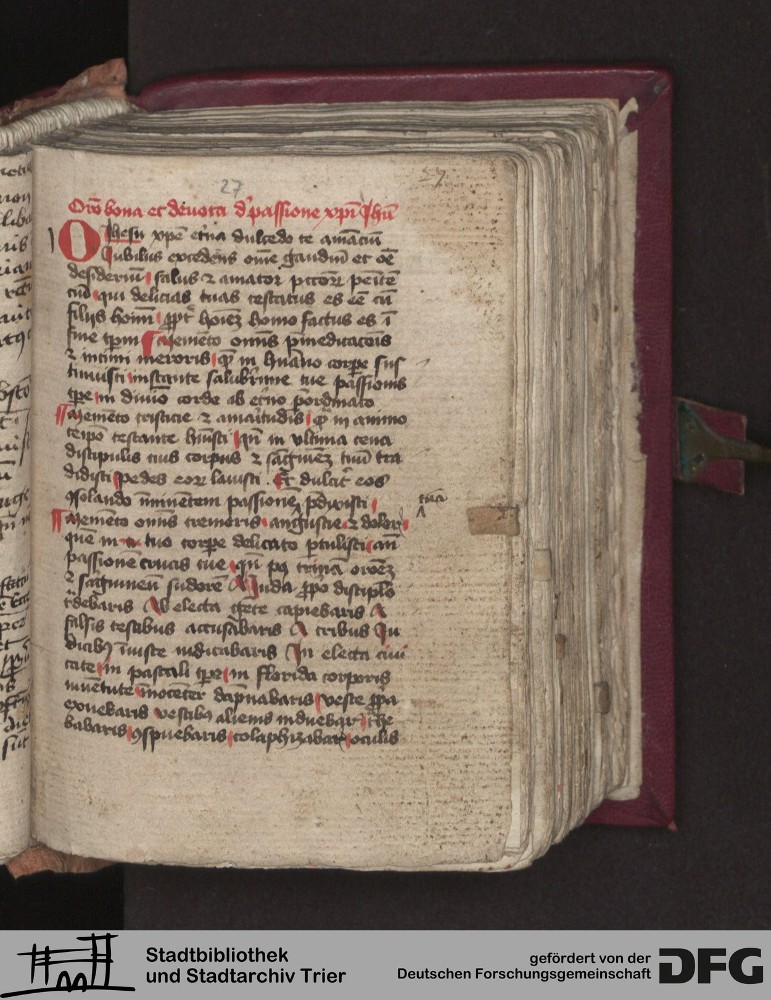 27
Oro bona et deuota d' passione xpi Jhu
O Jhesu xpe etna dulcedo te amanciu
Jubilus excedens ome gaudiu et oe
desideriu salus 2 amator pctorr penite
ciu qui delicias tuas testatus es ee cu
filijs homi ppt hoiez homo factus es i
fine tpm Memeto omis pmeditacois
2 intimi meroris q in huano corpe sus
tinuisti instante saluberime tue passionis
tpe in diuino corde ab etno pordinato
Memeto tristicie 2 amaritudis q in animo
teipo testante huisti qn in vltima cena
discipulis tuis corpus 2 saguiez tuu tra
didisti pedes eorr lauisti Et dulcit eos
9solando iminetem passionez pdixisti
Memeto omis tremoris angustie 2 dolor
que in tuo corpe delicato ptulisti an
passione crucis tue qn pq trina oroez
2 saguineu sudore A Juda ppo discipulo
tdebaris Ab electa gete capiebaris A
falsis testibus accusabaris A tribus Ju
dicib9 iniuste iudicabaris In electa ciui
tate in pascali tpe in florida corporis
iuuetute inoceter dapnabaris veste ppa
exuebaris vestib9 alienis induebar the
babaris 9spuebaris colaphizabar oculis
Stadtbibliothek
und Stadtarchiv Trier
gefördert von der
Deutschen Forschungsgemeinschaft
DFG